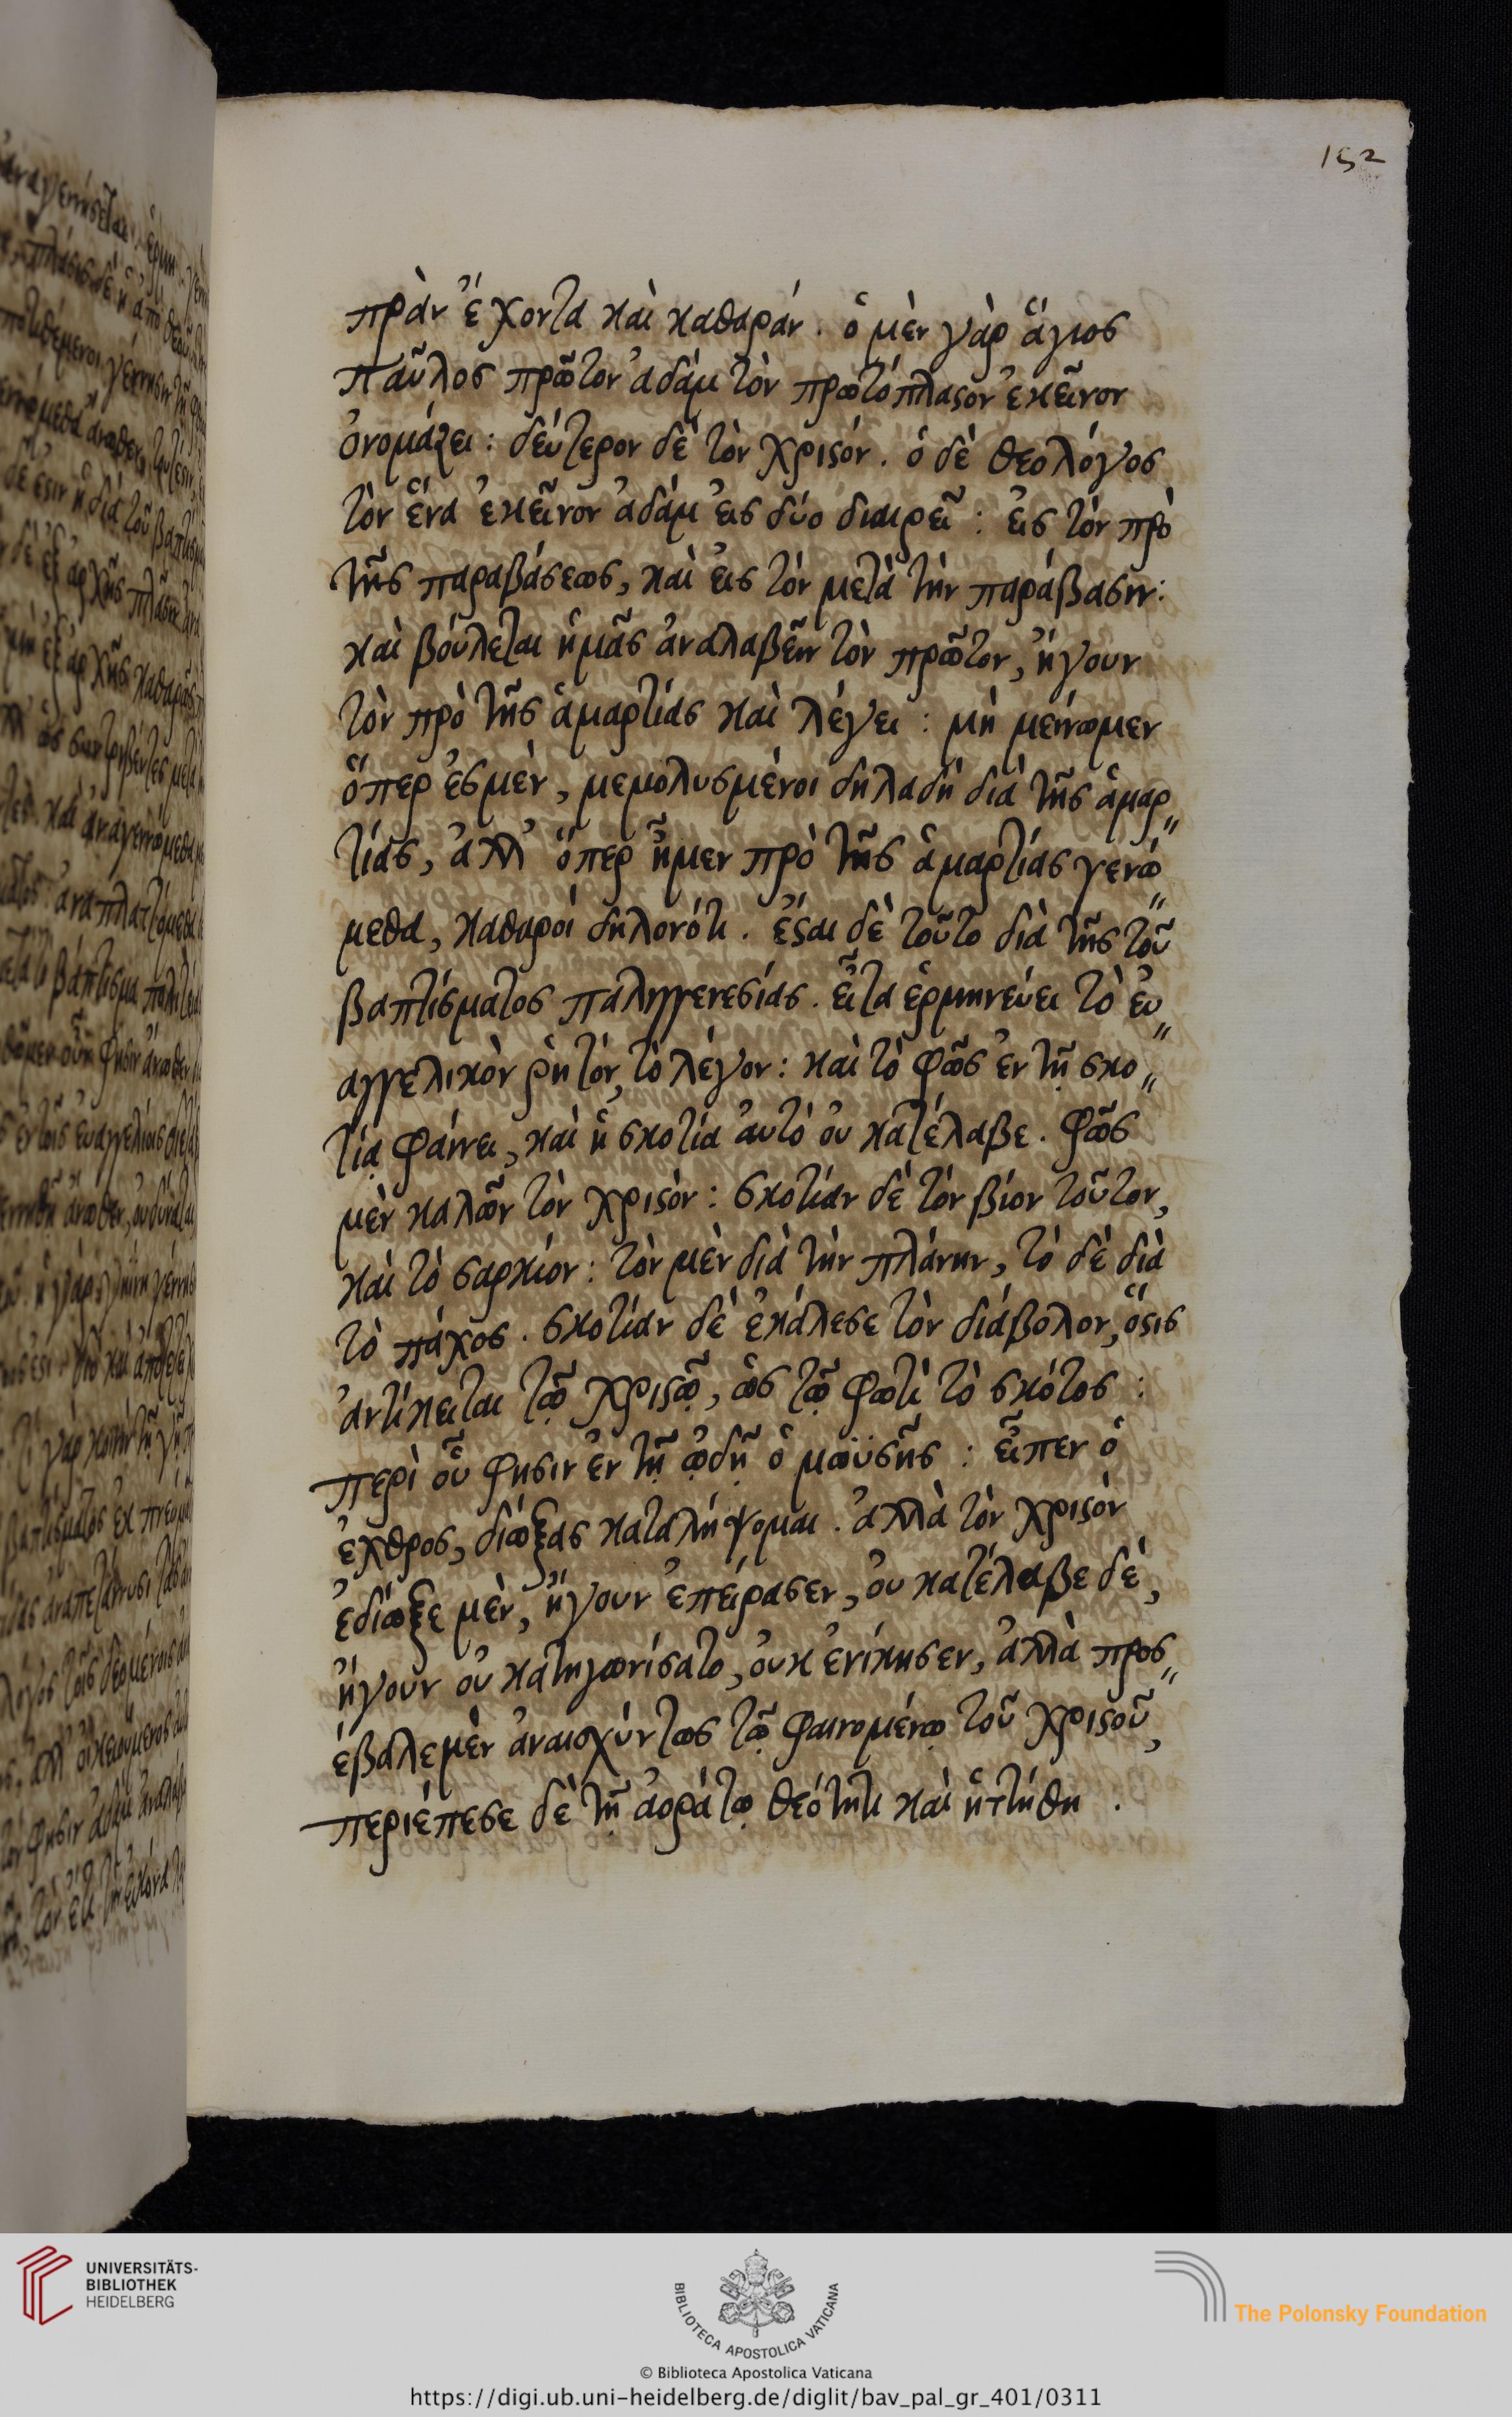 152
πρὰν ἔχοντα καὶ καθαράν. ὁ μὲν γὰρ ἅγιος
Παῦλος πρῶτον ἀδὰμ τὸν πρωτόπλαστον ἐκεῖνον
ὀνομάζει: δεύτερον δὲ τὸν χριστόν. ὁ δὲ θεολόγος
τὸν ἕνα ἐκεῖνον ἀδὰμ εἰς δύο διαιρεῖ: εἰς τὸν πρὸ
τῆς παραβάσεως, καὶ εἰς τὸν μετὰ τὴν παράβασιν:
καὶ βούλεται ἡμᾶς ἀναλαβεῖν τὸν πρῶτον, ἤγουν
τὸν πρὸ τῆς ἁμαρτίας καὶ λέγει: μὴ μείνωμεν
ὅπερ ἐσμὲν, μεμολυσμένοι δηλαδὴ διὰ τῆς ἁμαρ„
τίας, ἀλλ’ ὅπερ ἦμεν πρὸ τῆς ἁμαρτίας γενώ„
μεθα, καθαροί δηλονότι. ἔσται δὲ τοῦτο διὰ τῆς τοῦ
βαπτίσματος παλιγγενεσίας. εἶτα ἑρμηνεύει τὸ εὐ„
αγγελικὸν ῥητόν, τὸ λέγον: καὶ τὸ φῶς ἐν τῇ σκο„
τίᾳ φαίνει, καὶ ἡ σκοτία αὐτὸ οὐ κατέλαβε. φῶς
μὲν καλῶν τὸν χριστὸν: σκοτίαν δὲ τὸν βίον τοῦτον,
καὶ τὸ σαρκίον: τὸν μὲν διὰ τὴν πλάνην, τὸ δὲ διὰ
τὸ πάχος. σκοτίαν δὲ ἐκάλεσε τὸν διάβολον, ὅστις
ἀντίκειται τῷ χριστῷ, ὡς τῷ φωτὶ τὸ σκότος:
περὶ οὗ φησιν ἐν τῇ ᾠδῇ ὁ μωϋσῆς: εἶπεν ὁ
ἐχθρος, διώξας καταλήψομαι. ἀλλὰ τὸν χριστὸν
ἐδίωξε μὲν, ἤγουν ἐπείρασεν, οὐ κατέλαβε δὲ,
ἤγουν οὐ κατηγωνίσατο, οὐκ ἐνίκησεν, ἀλλὰ προσ„
έβαλε μὲν ἀναισχύντως τῷ φαινομένῳ τοῦ χριστοῦ,
περιέπεσε δὲ τῇ ἀοράτῳ θεότητι καὶ ἡττήθη.
UNIVERSITÄTS-
BIBLIOTHEK
HEIDELBERG
BIBLIOTECA APOSTOLICA VATICANA
The Polonsky Foundation
© Biblioteca Apostolica Vaticana
https://digi.ub.uni-heidelberg.de/diglit/bav_pal_gr_401/0311